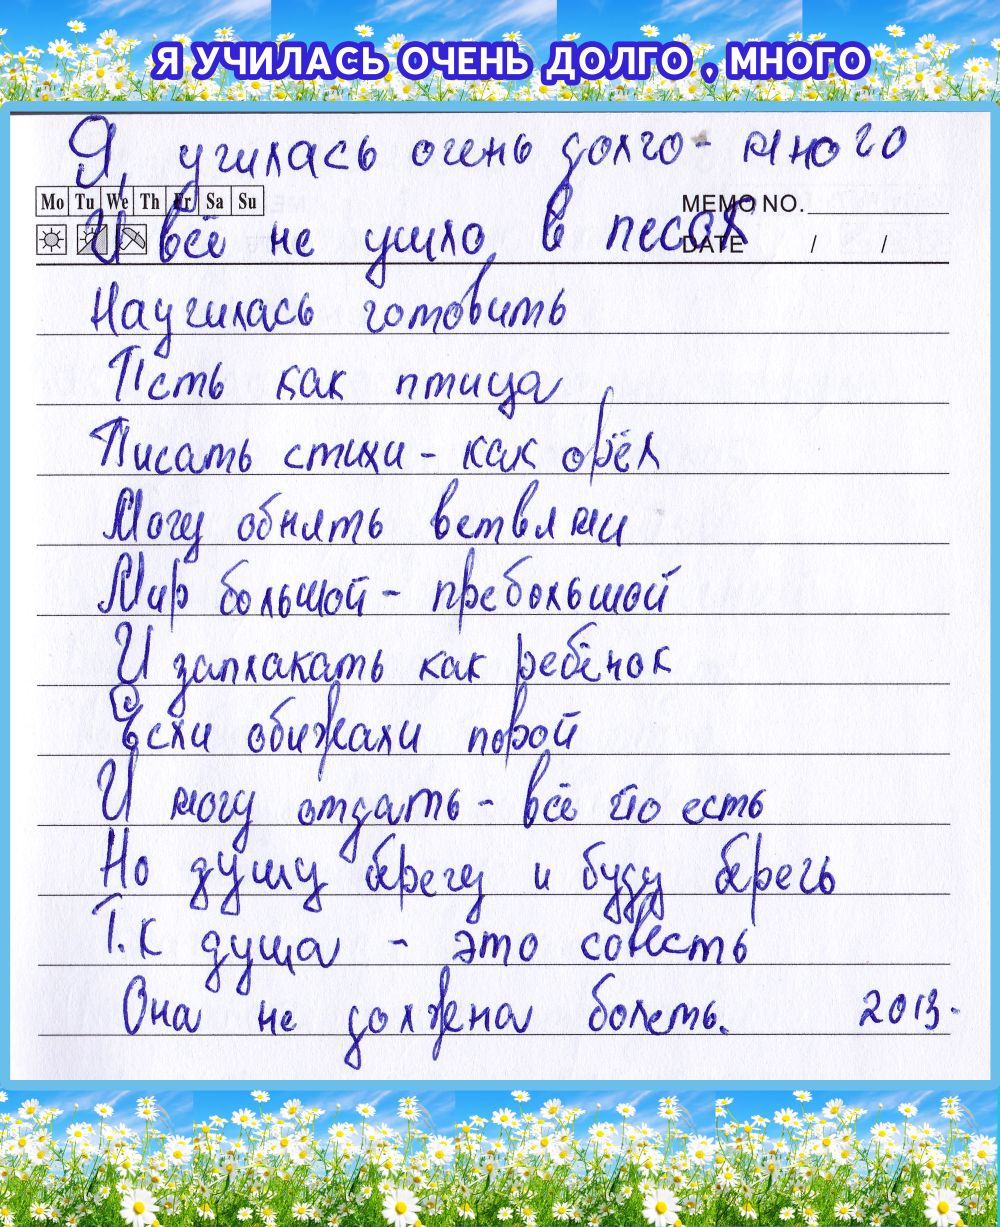 Я УЧИЛАСЬ ОЧЕНЬ ДОЛГО , МНОГО
Я, училась очень долго - много
Mo Tu We Th Fr Sa Su
MEMO NO.
И всё не ушло в песок
DATE / /
Научилась готовить
Петь как птица
Писать стихи - как орёл
Могу обнять ветвями
Мир большой - пребольшой
И заплакать как ребёнок
Если обижали порой
И могу отдать - всё что есть
Но душу берегу и буду беречь
Т.к душа - это совесть
Она не должена болеть. 2013.